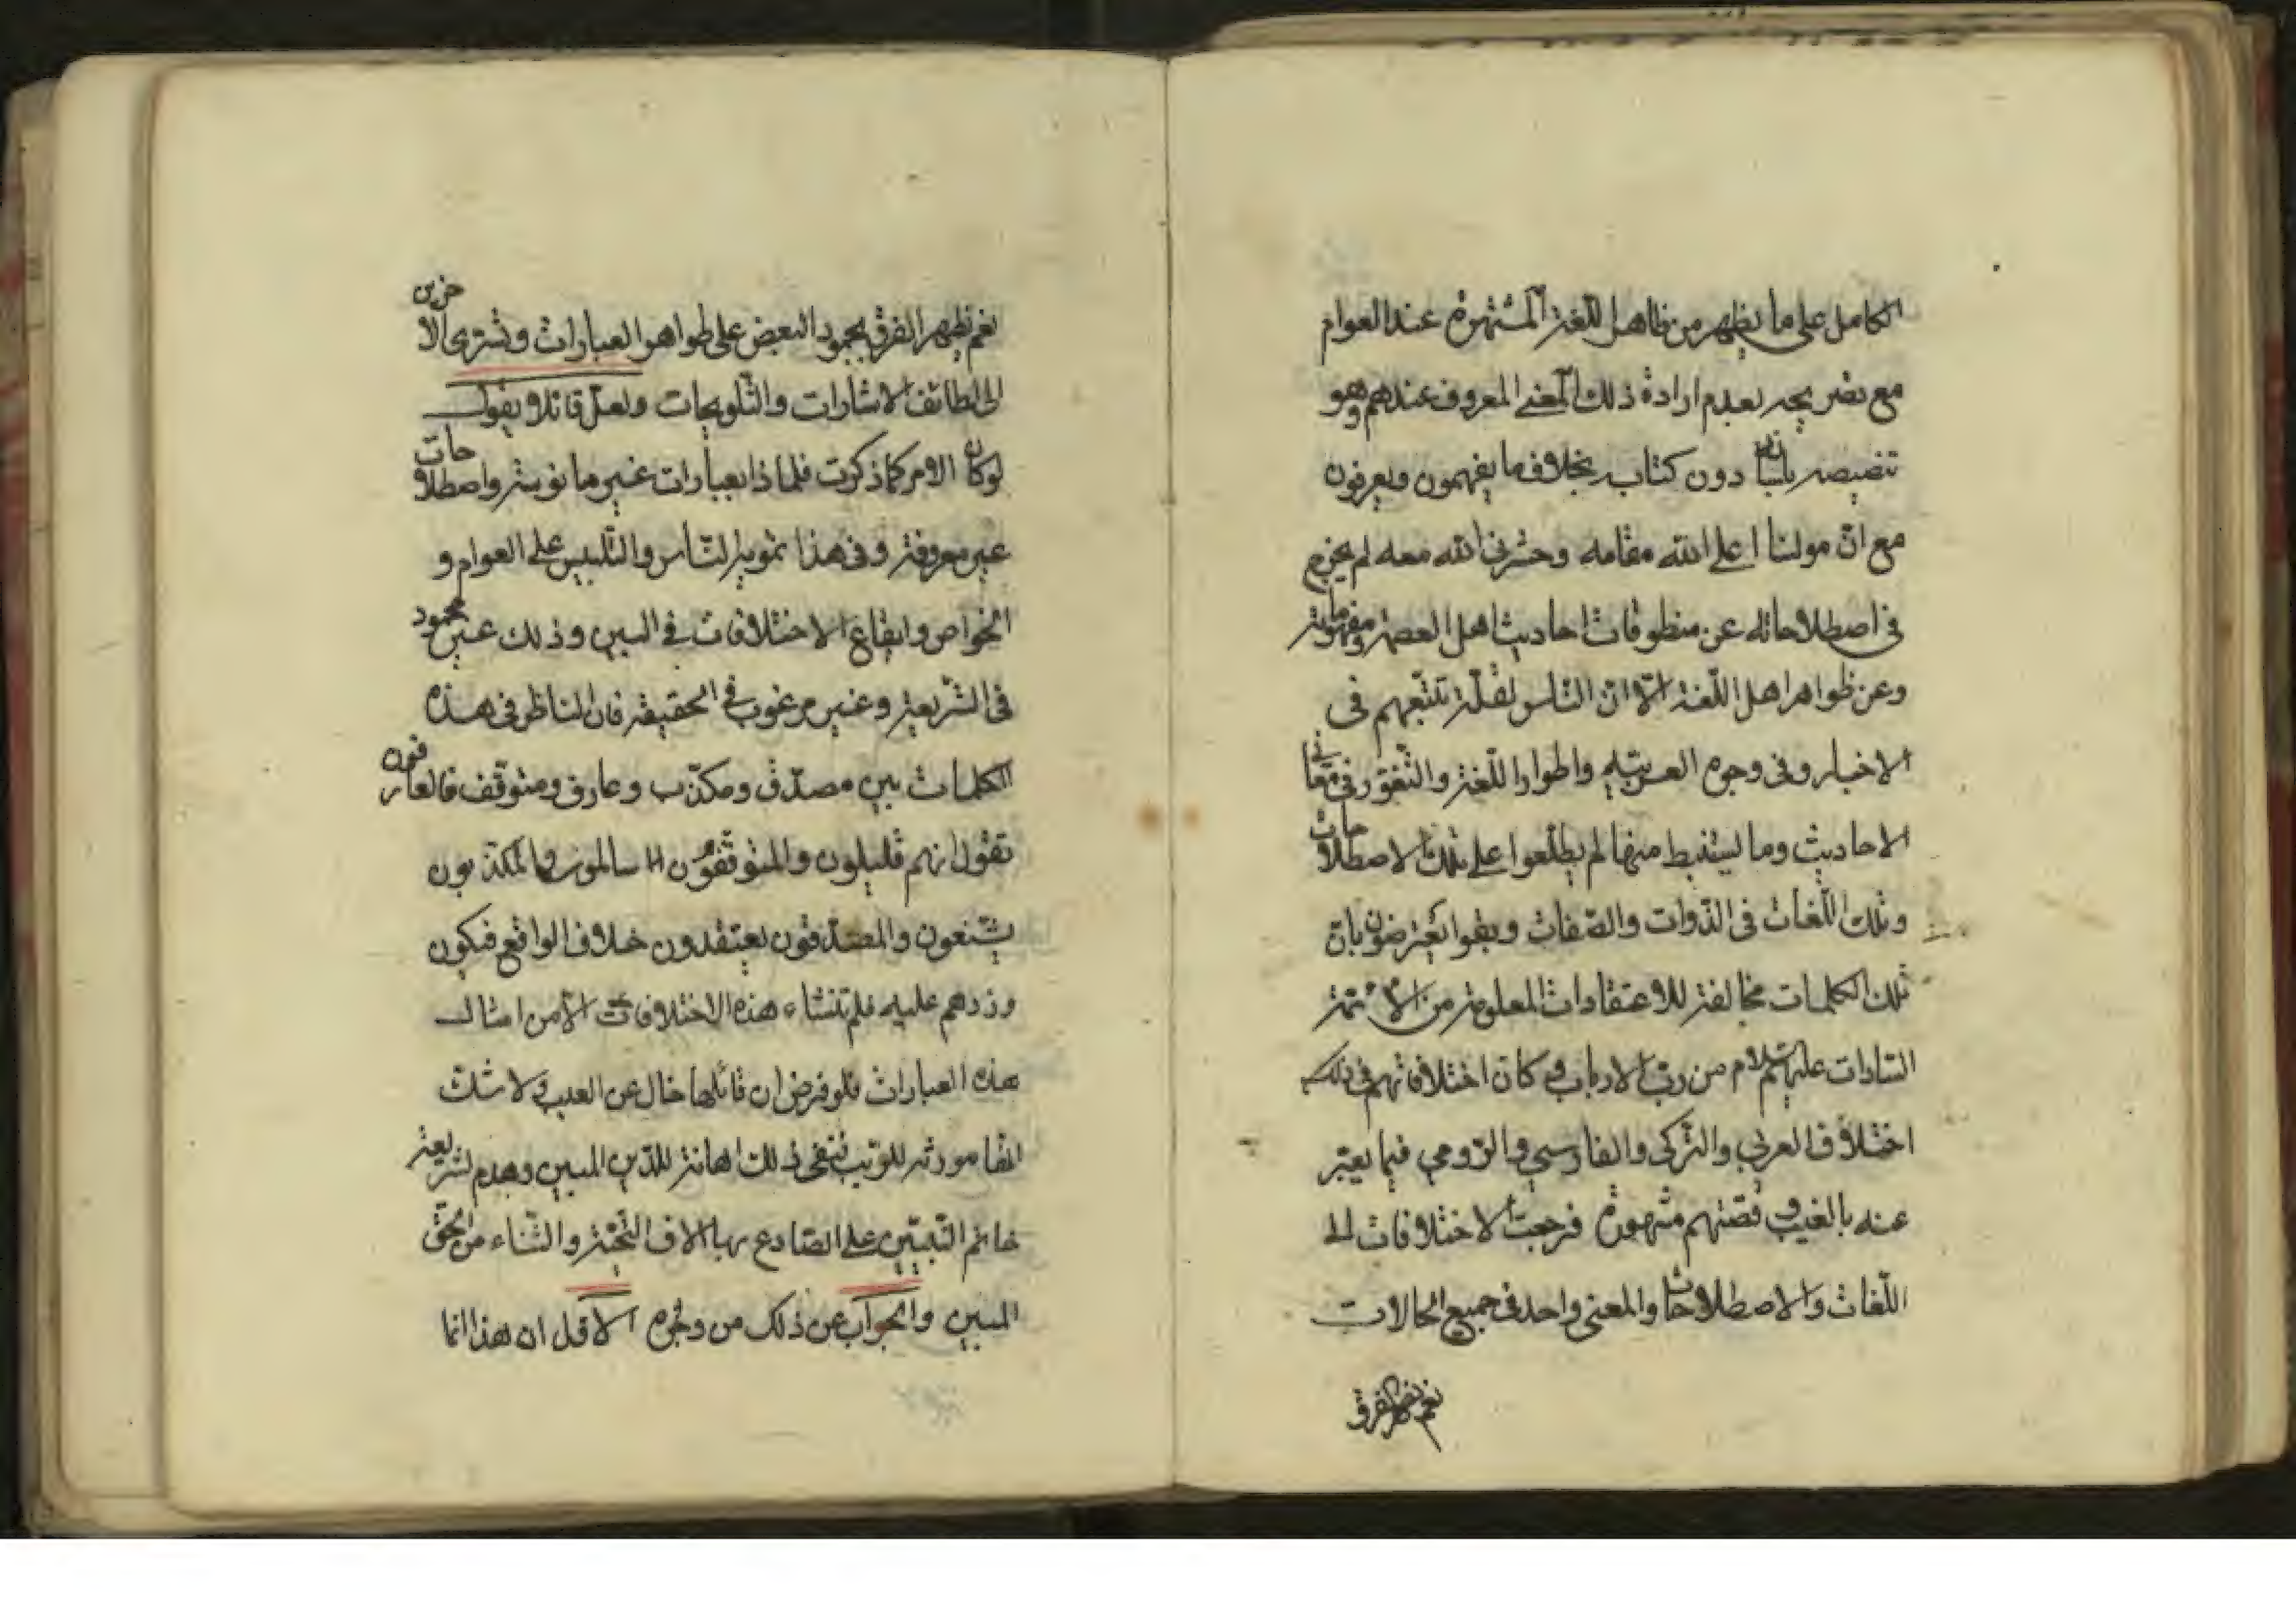 الكامل على ما يظهر من ظاهر اللغة المشتهرة عند العوام
مع تصريحه بعدم ارادة ذلك المعنى المعروف عندهم وهو
تنصيصه بلسانه دون كتابه بخلاف ما يفهمون ويعرفون
مع ان مولينا اعلى الله مقامه وحشرني الله معه لم يخرج
في اصطلاحاته عن منطوقات احاديث اهل العصمة ومفهوماته
وعن ظواهر اهل اللغة الا ان الناس لقلة تتبعهم في
الاخبار وفى وجوه العربية واطوار اللغة والتغور في معاني
الاحاديث وما يستنبط منها لم يطلعوا على تلك الاصطلاحات
وتلك اللغات فى الذوات والصفات وبقوا يعترضون بان
تلك الكلمات مخالفة للاعتقادات المعلومة من الائمة
السادات عليهم السلام من رب الارباب وكان اختلافاتهم في ذلك
اختلاف العربي والتركي والفارسي والرومي فيما يعبر
عنه بالغيب وقصتهم مشهورة فرجعت الاختلافات الى
اللغات والاصطلاحات والمعنى واحد فى جميع الحالات
نعم يظهر الفرق
نعم يظهر الفرق بجمود البعض على ظواهر العبارات وتسرى الاخرين
الى لطائف الاشارات والتلويحات ولعل قائلا يقول
لو كان الامر كما ذكرت فلما ذا بعبارات غير مانوسة واصطلاحات
غير معروفة وفى هذا تمويه الناس والتلبيس على العوام و
الخواص وايقاع الاختلافات في البين وذلك غير محمود
فى الشريعة وغير مرغوب في الحقيقة فان الناظر فى هذه
الكلمات بين مصدق ومكذب وعارف ومتوقف فالعارفون
تقول انهم قليلون والمتوقفون سالمون والمكذبون
يشنعون والمصدقون يعتقدون خلاف الواقع فيكون
وزرهم عليه فلم تنشاء هذه الاختلافات الا من امثال
هذه العبارات فلو فرض ان قائلها خال عن العيب ولا شك
انها مورثة للريب ففى ذلك اهانة للدين المبين وهدم لشريعة
خاتم النبيين على الصادع بها الاف التحية والثناء من الحق
المبين والجواب عن ذلك من وجوه الاول ان هذا انما